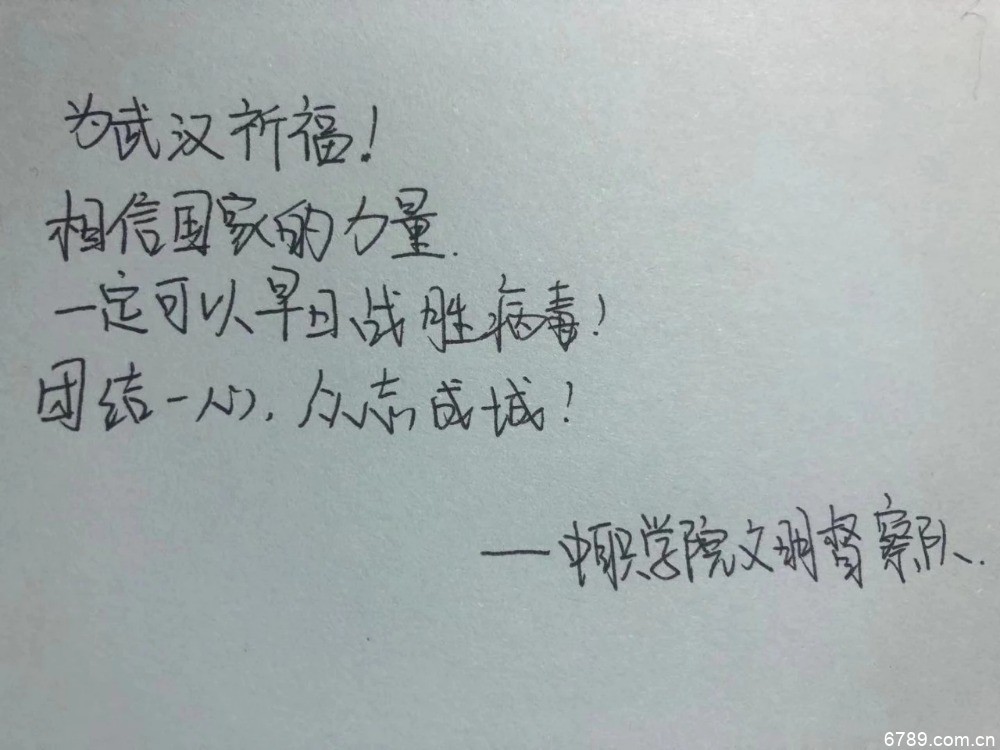 为武汉祈福!
相信国家的力量.
一定可以早日战胜病毒!
团结一心,众志成城!
——中职学院文明督察队.
6789.com.cn